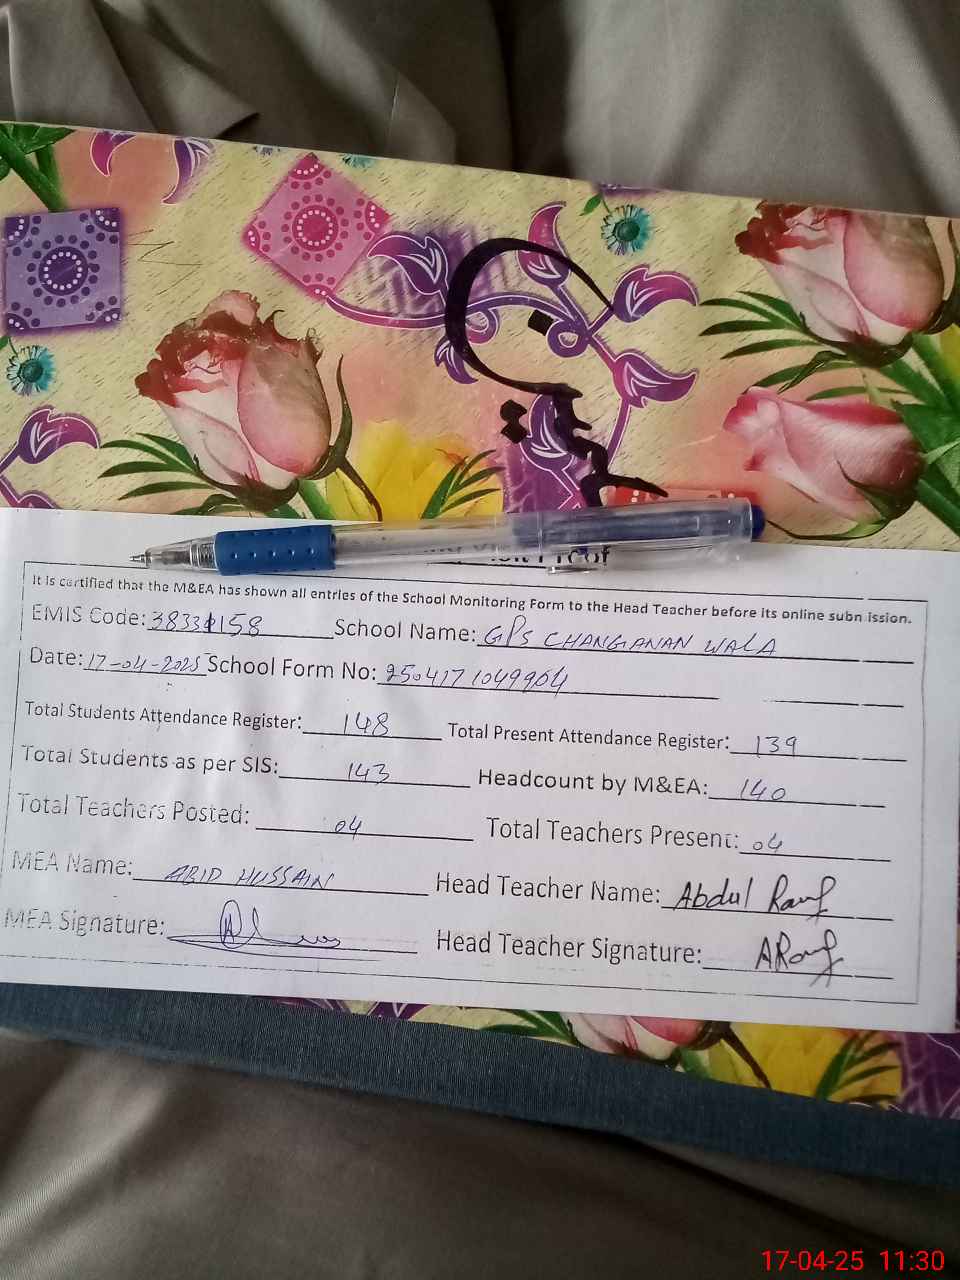 Proof
It is certified that the M&EA has shown all entries of the School Monitoring Form to the Head Teacher before its online submission.
EMIS Code: 38331158 School Name: GPS CHANGANAN WALA
Date: 17-04-2025 School Form No: 2504171049904
Total Students Attendance Register: 148 Total Present Attendance Register: 139
Total Students as per SIS: 143 Headcount by M&EA: 140
Total Teachers Posted: 04 Total Teachers Present: 04
MEA Name: ABID HUSSAIN Head Teacher Name: Abdul Rauf
MEA Signature: Head Teacher Signature: ARauf
17-04-25 11:30